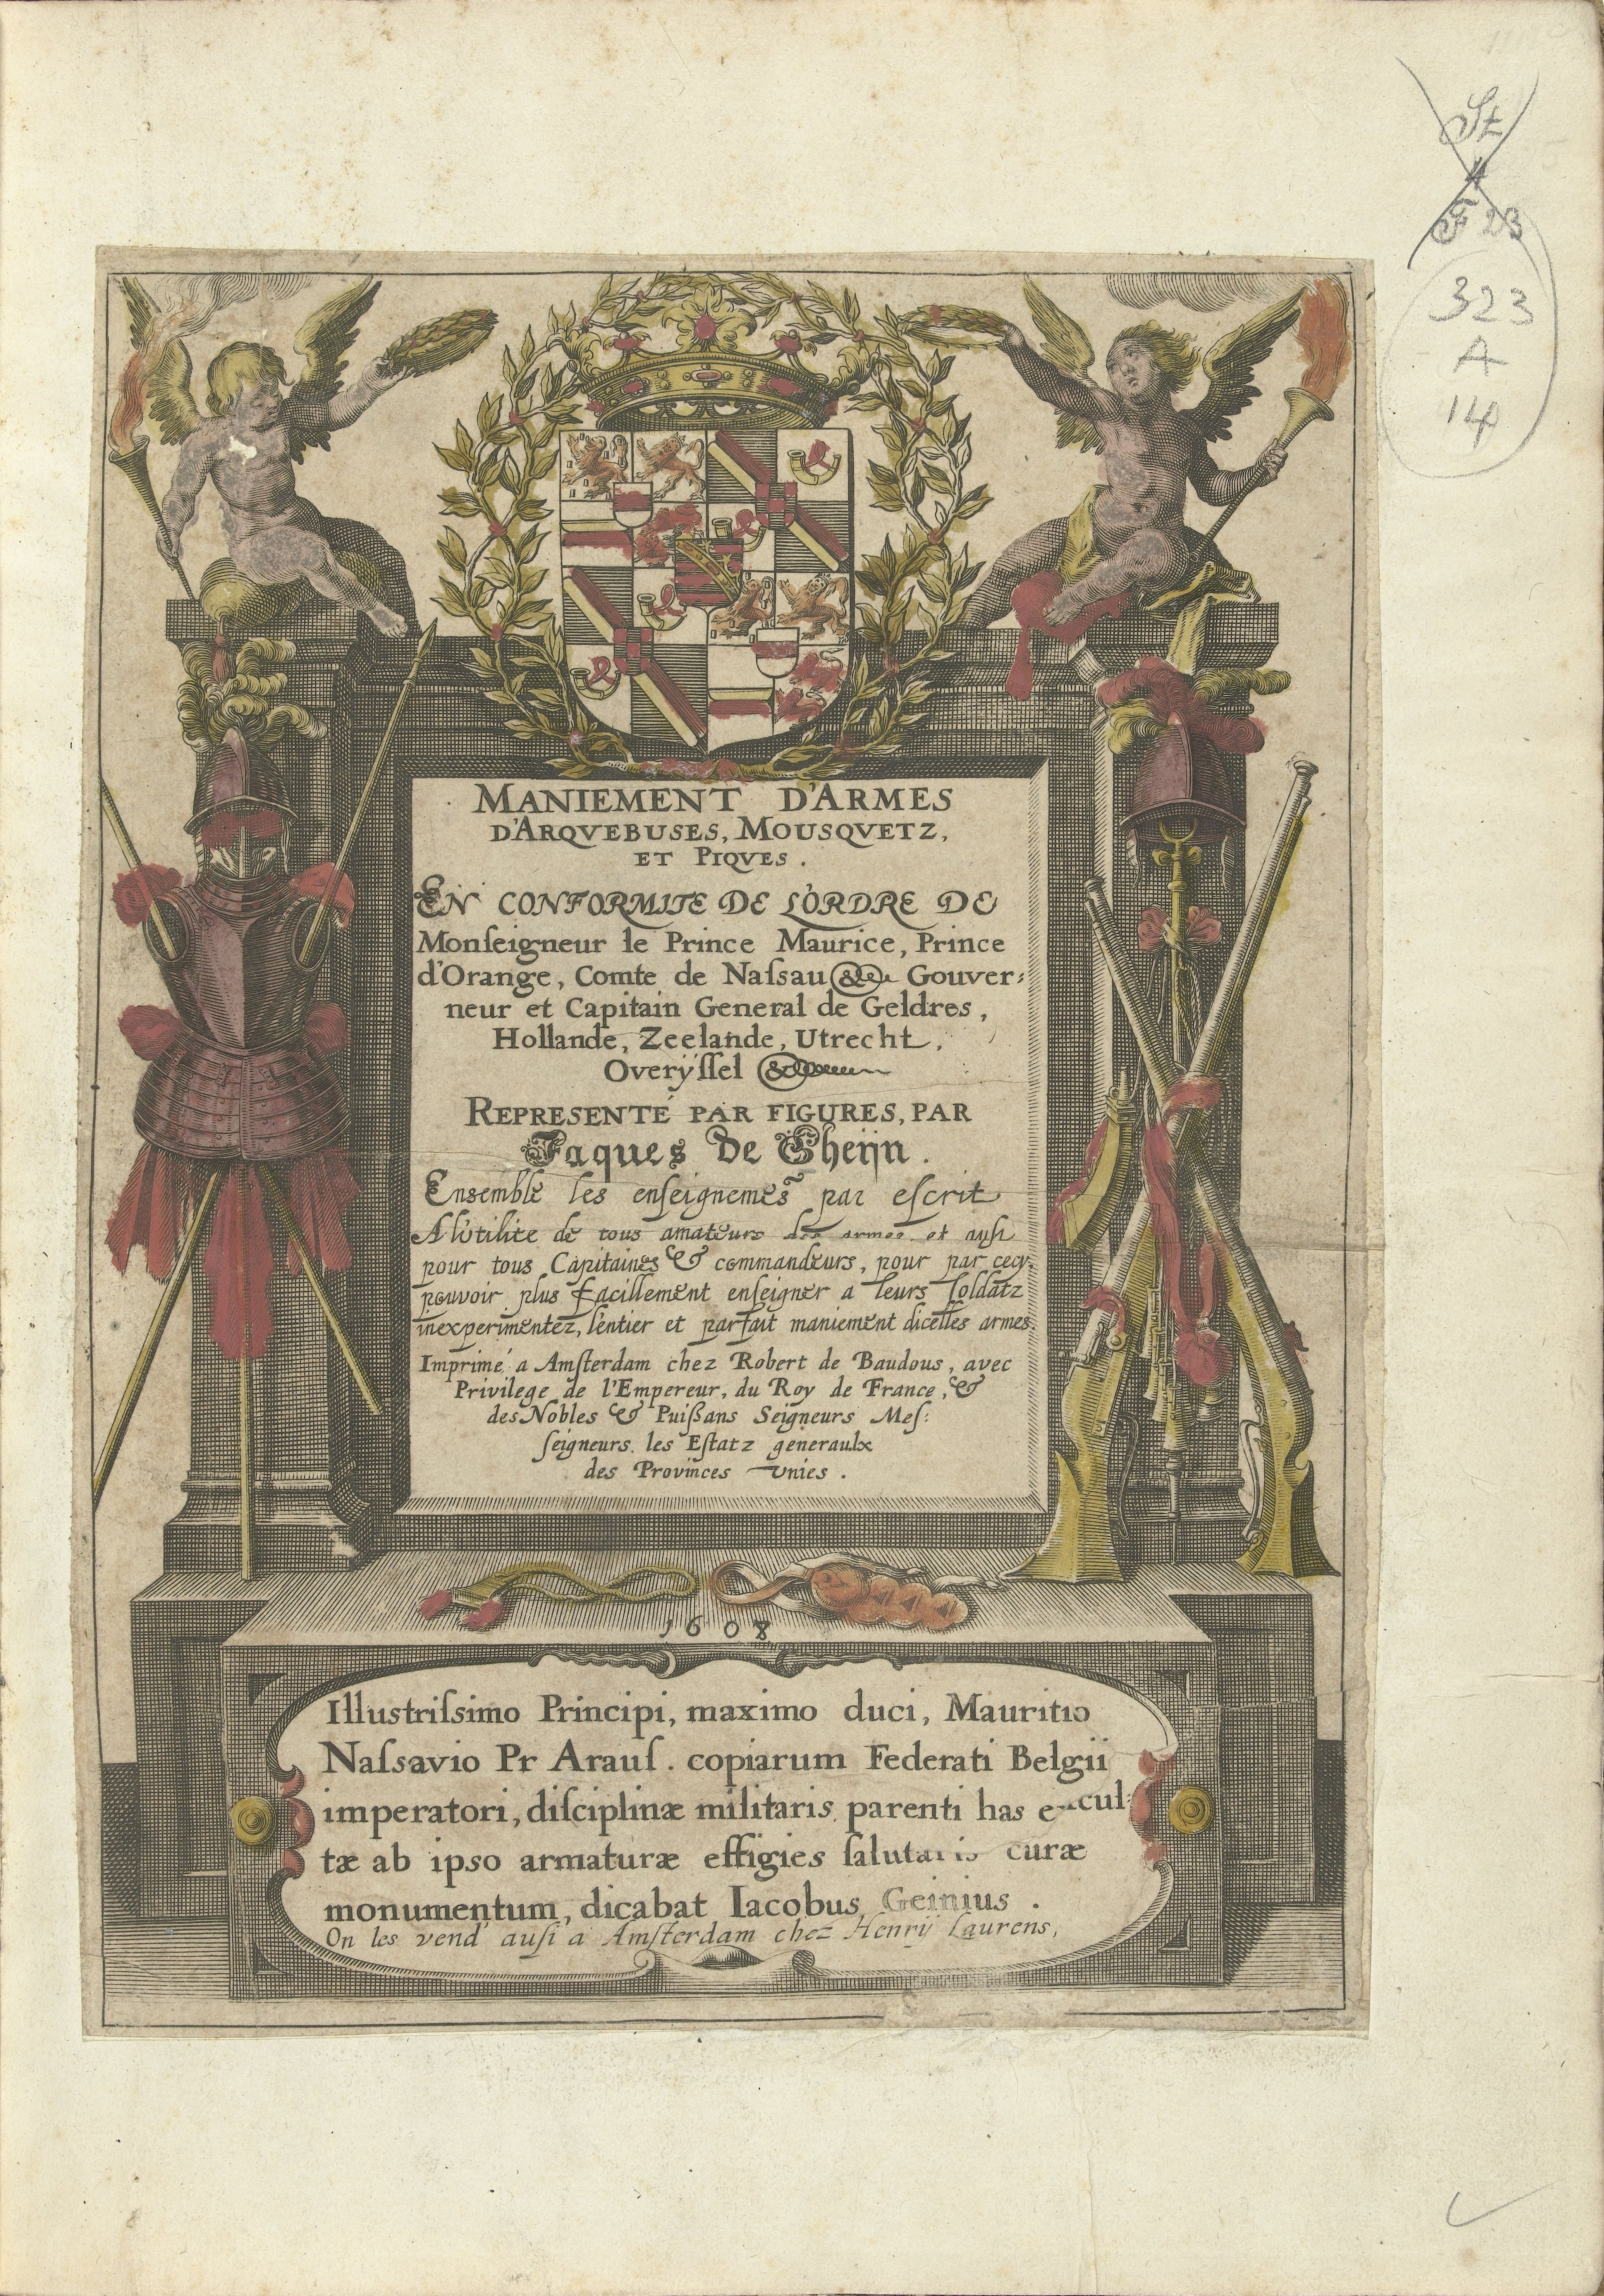 St
4
F 23
323
A
14
MANIEMENT D'ARMES
D'ARQVEBUSES, MOUSQVETZ,
ET PIQVES.
EN CONFORMITE DE L'ORDRE DE
Monſeigneur le Prince Maurice, Prince
d'Orange, Comte de Naſsau &c Gouver:
neur et Capitain General de Geldres,
Hollande, Zeelande, Utrecht,
Overÿſſel &c
REPRESENTÉ PAR FIGURES, PAR
Jaques de Gheijn.
Ensemble les enſeignemẽs par eſcrit
A l'utilite de tous amateurs des armes et auſsi
pour tous Capitaines & commandeurs, pour par cecy
pouvoir plus facillement enſeigner a leurs ſoldatz
inexperimentez, l'entier et parfait maniement dicelles armes
Imprimé a Amſterdam chez Robert de Baudous, avec
Privilege de l'Empereur, du Roy de France, &
des Nobles & Puißans Seigneurs Meſ:
ſeigneurs les Eſtatz generaulx
des Provinces Vnies.
1608
Illustriſsimo Principi, maximo duci, Mauritio
Naſsavio Pr Arauſ. copiarum Federati Belgii
imperatori, diſciplinæ militaris parenti has
tæ ab ipso armaturæ effigies ſalutaris curæ
monumentum, dicabat Iacobus Geinius.
On les vend auſi a Amſterdam chez Henrÿ Laurens,